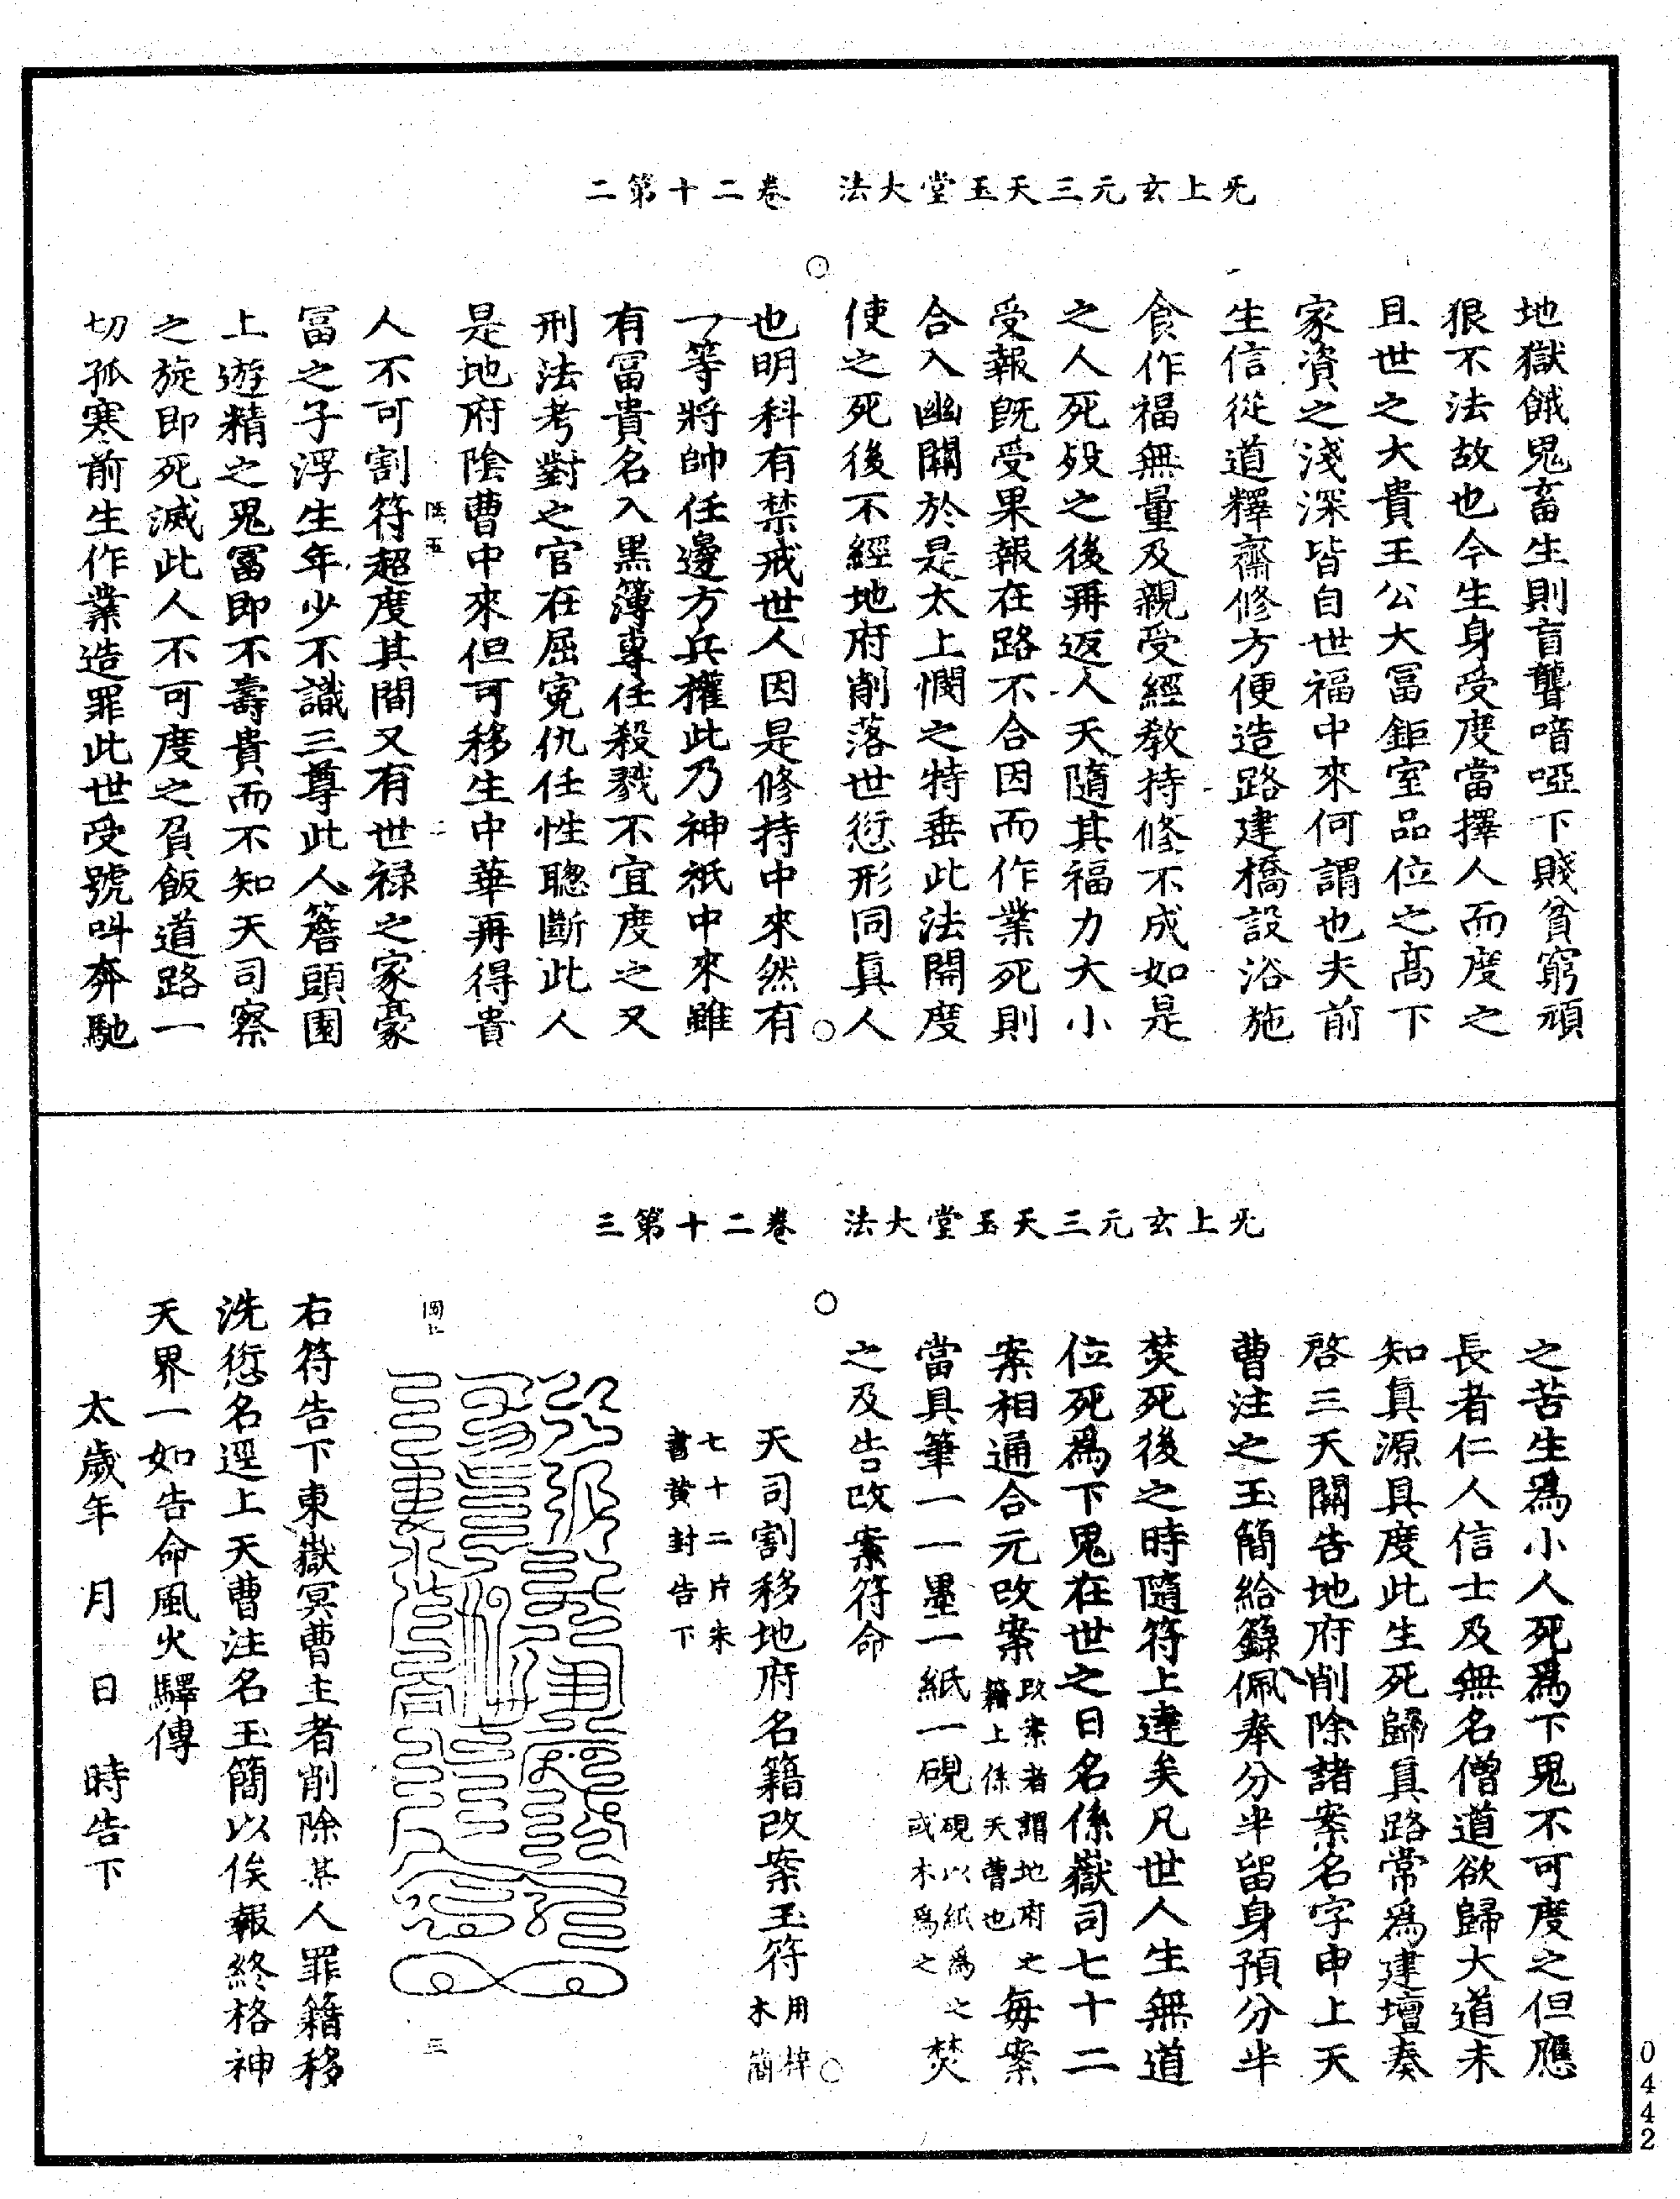 无上玄元三天玉堂大法　卷二十第二
地獄餓鬼畜生則盲聾喑啞下賤貧窮頑
狠不法故也今生身受度當擇人而度之
且世之大貴王公大冨鉅室品位之髙下
家資之淺深皆自世福中來何謂也夫前
生信從道釋齋修方便造路建橋設浴施
食作福無量及親受經教持修不成如是
之人死歿之後再返人天隨其福力大小
受報旣受果報在路不合因而作業死則
合入幽關於是太上憫之特垂此法開度
使之死後不經地府削落世愆形同眞人
也明科有禁戒世人因是修持中來然有
一等將帥任邊方兵權此乃神祇中來雖
有冨貴名入黑簿專任殺戮不宜度之又
刑法考對之官在屈寃仇任性聦斷此人
是地府隂曹中來但可移生中華再得貴
人不可割符超度其間又有世祿之家豪
冨之子浮生年少不識三尊此人簷頭園
上遊精之鬼冨即不壽貴而不知天司察
之旋即死滅此人不可度之負飯道路一
切孤寒前生作業造罪此世受號叫奔馳
无上玄元三天玉堂大法　卷二十第三
之苦生爲小人死爲下鬼不可度之但應
長者仁人信士及無名僧道欲歸大道未
知眞源具度此生死歸眞路常爲建壇奏
啓三天關告地府削除諸案名字申上天
曹注之玉簡給籙佩奉分半留身預分半
焚死後之時隨符上達矣凡世人生無道
位死爲下鬼在世之日名係嶽司七十二
案相通合元改案改案者謂地府之籍上係天曹也每案
當具筆一一墨一紙一硯硯以紙爲之或木爲之焚
之及告改案符命
天司割移地府名籍改案玉符用梓木簡
七十二片朱書黄封告下
右符告下東嶽冥曹主者削除某人罪籍移
洗愆名逕上天曹注名玉簡以俟報終格神
天界一如告命風火驛傳
太歲年　月　日　時告下
0442